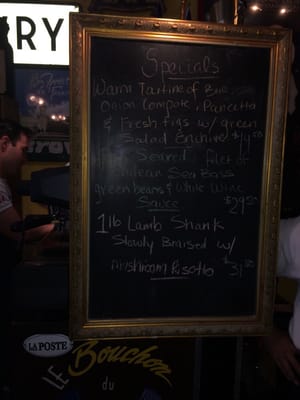 RY
Specials
Warm Tartine of Brie
onion Compote, Pancetta
& Fresh figs w/ green
Salad Endive $14.00
Seared filet of
Chilean Sea Bass
green beans & White Wine
Sauce $29.00
1lb Lamb Shank
Slowly Braised w/
Mushroom Risotto $31.00
LA POSTE
LE Bouchon
du